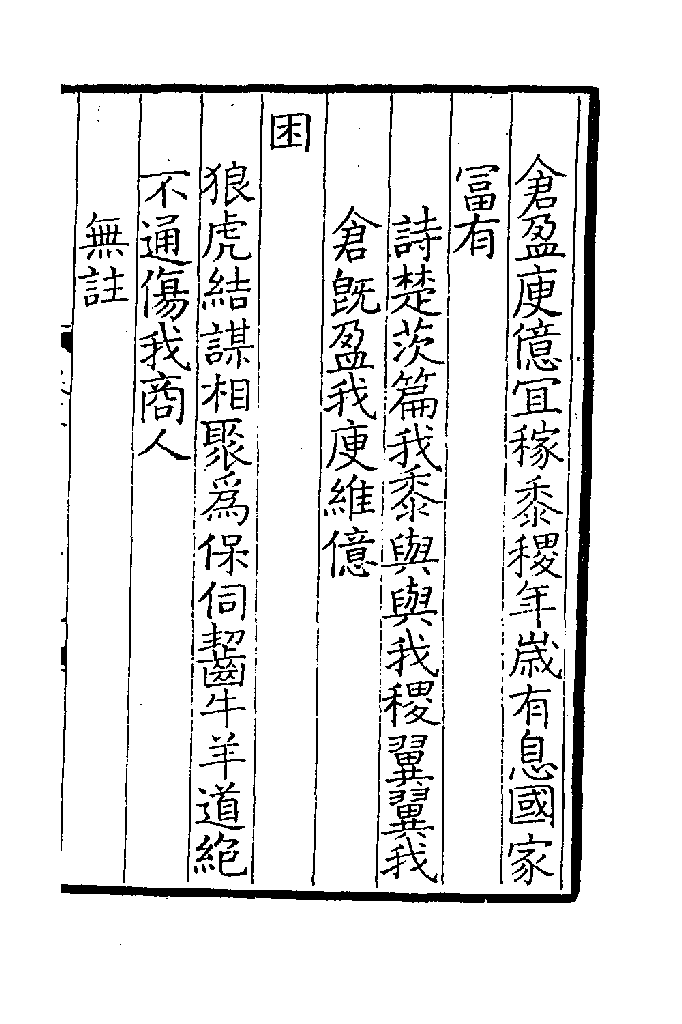 倉盈庾億宜稼黍稷年歲有息國家
冨有
詩楚茨篇我黍與與我稷翼翼我
倉旣盈我庾維億
困
狼虎結謀相聚爲保伺齧牛羊道絶
不通傷我商人
無註